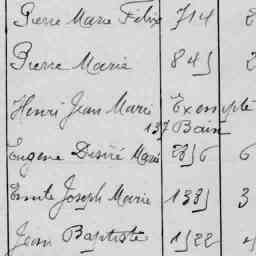 Pierre Marie Felix 714 2
Pierre Marie 845 2
Henri Jean Marie Exempté
137 Bain
Eugene Desiré Marie 6
Emile Joseph Marie 1335 3
Jean Baptiste 1522